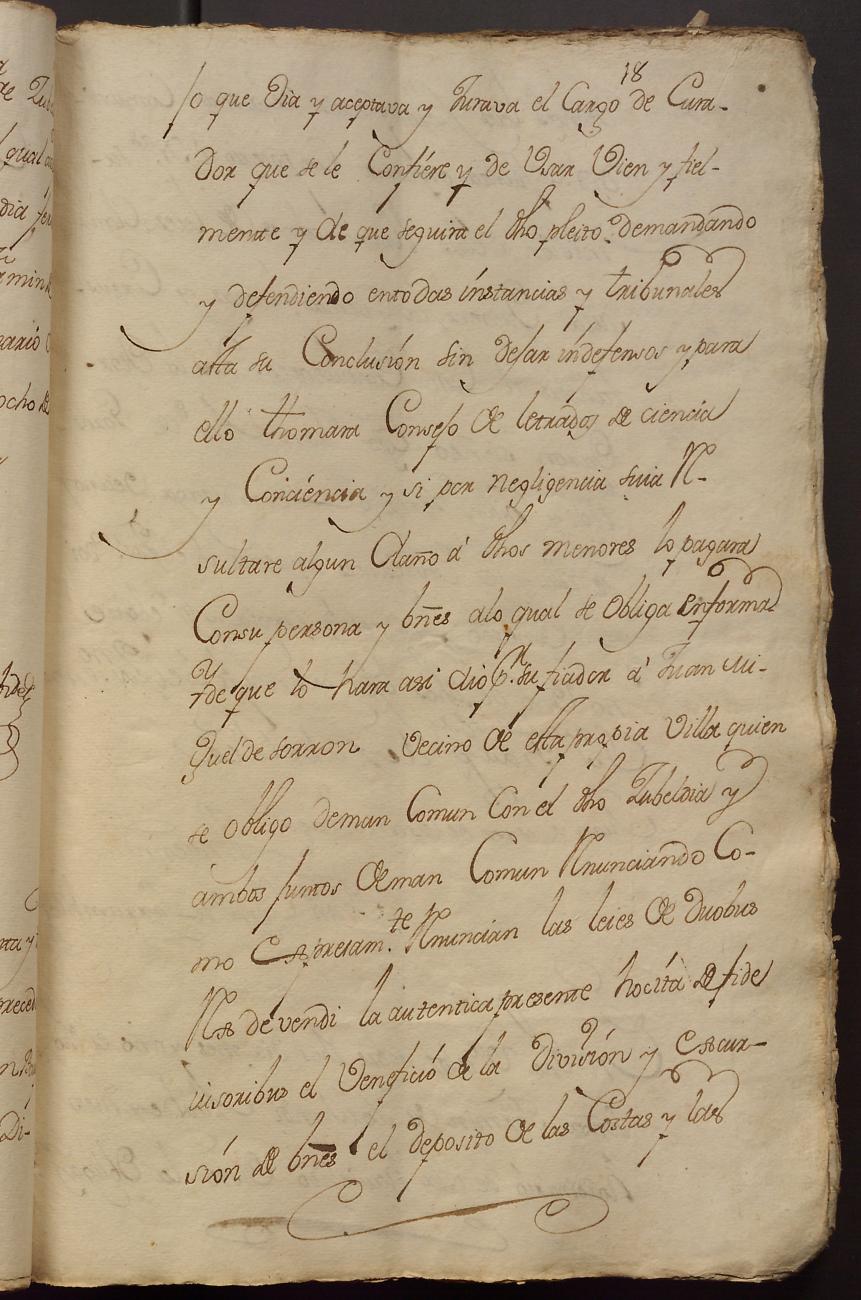 18
lo que Dia y aceptava y Jurava el Cargo de Cura-
Dor que se le Confiere y de Usar Vien y fiel-
mente y de que seguira el dho pleito demandando
y defendiendo entodas instancias y tribunales
asta su Conclusión sin dejar indefensos y para
ello thomara Consejo de letrados de ciencia
y Conciencia y si por negligencia suia R-
sultare algun Daño a dhos menores lo pagara
Consu persona y bñes alo qual se obliga enforma
y de que lo hara asi dio Pr. su fiador a Juan Mi-
guel de sorron Vecino de esta propia Villa quien
se obligo deman Comun Con el dho Zubeldia y
ambos juntos deman Comun Rnunciando Co-
mo Espresam.te Rnuncian las leies de Duobus
Rs devendi la autentica presente hocita de fide
iusoribus el Venefició de la Division y Escur-
sión de bñes el deposito de las Costas y las